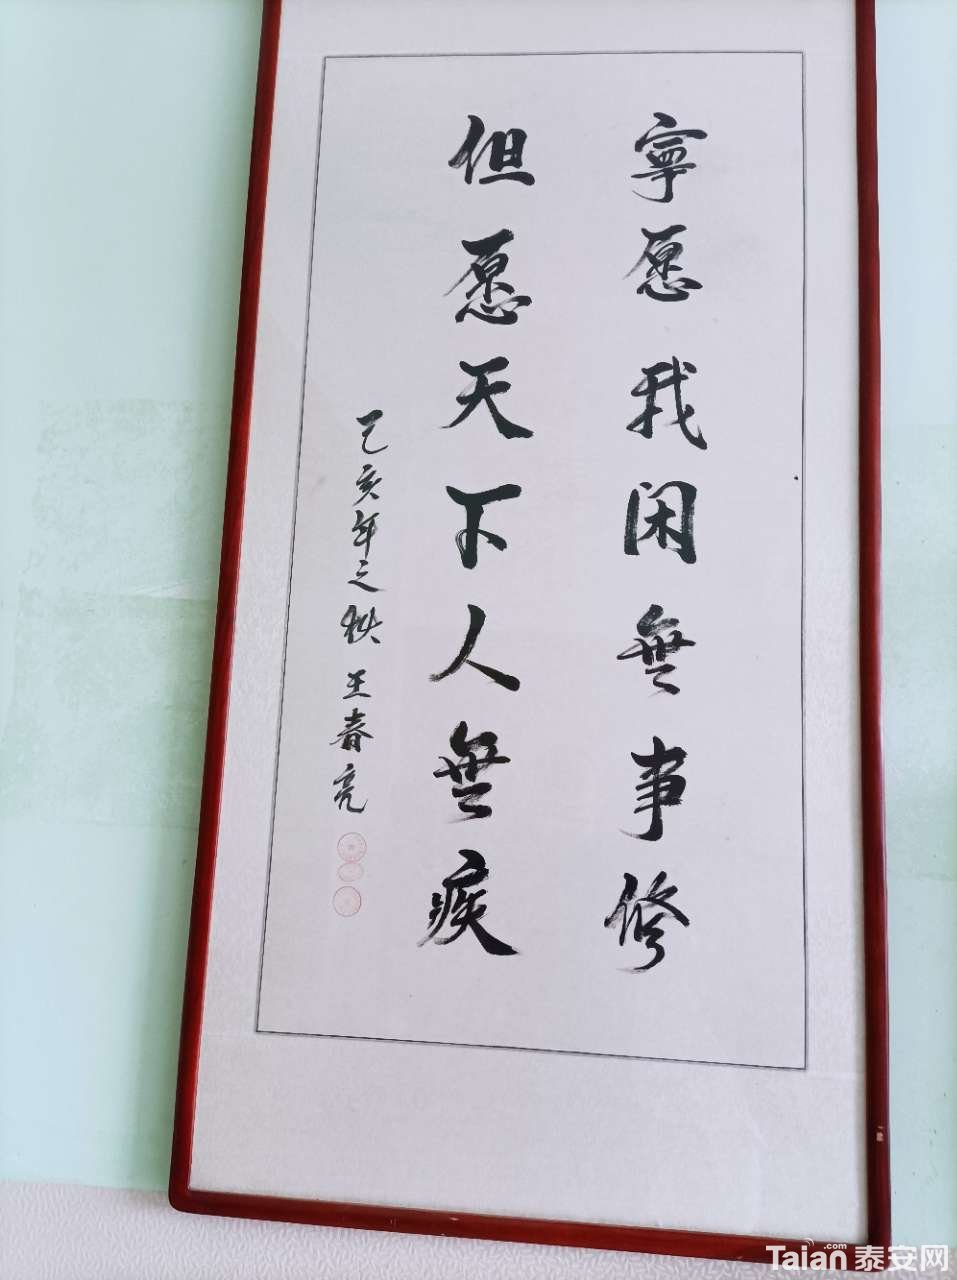 寧愿我闲無事修
但愿天下人無疾
乙亥年之秋 王春亮
Taian.com 泰安网